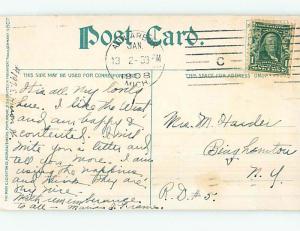 Post Card.
ANN ARBOR
JAN
13 2-30PM
1908
MICH.
C
THIS SIDE MAY BE USED FOR CORRESPONDENCE
THIS SPACE FOR ADDRESS ONLY.
It is all my lonely
here. I like the West
and am happy &
contented. Will
write you a letter and
tell you more. I am
using the napkins
and think they are
very nice.
With remembrance
to all - Marion S. Frame.
Mrs. M. Harder
Binghamton
N. Y.
R.D. #5.